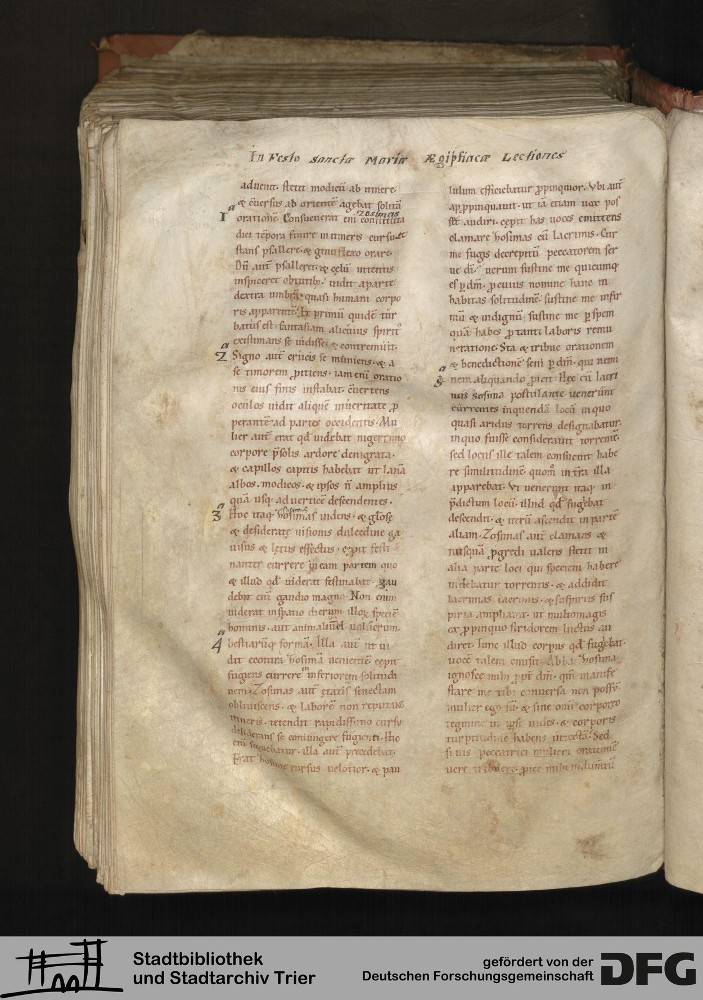 In Festo Sanctæ Mariæ Ægiptiacæ Lectiones
aduenit. stetit modicū ab itinere.
& cūersus ad orientē agebat solitā
1ª
orationē. Consueuerat eni constituta
zosimas
diei tēpora finire in itineris cursu. &
stans psallere. & genu flexo orare.
Dū autē psalleret. & celū intentus
inspiceret obtutib; uidit a parte
dextra umbrā quasi humani corpo
ris apparentē. Et primū quidē tur
batus est. fantasiam alicuius spirit͛
existimans se uidisse. & contremuit.
2ª
Signo autē crucis se muniens. & a
se timorem piciens. iam eni oratio
nis eius finis instabat. cūertens
oculos uidit aliquē in ueritate p
perantē ad partes occidentis. Mu
lier autē erat qđ uidebat nigerrimo
corpore p solis ardore denigrata.
& capillos capitis habebat ut lana
albos. modicos. & ipsos ñ amplius
quā usq; ad uerticē descendentes.
3ª
Hoc itaq; hosimas uidens. & gtose
& desideratę uisionis dulcedine ga
uisus & lętus effectus. cepit festi
nanter currere in eam partem quo
& illud qđ uiderat festinabat. Gau
debat eni gaudio magno. Non enim
uiderat in spatio dierum illoꝝ speciē
hominis. aut animaliū uel uolucrum.
4ª
bestiarūq; formā. Illa autē ut ui
dit eminus hosimā uenientē cepit
fugiens currere in interiorem solitudi
nem. Zosimas autē etatis senectam
obliuiscens. & laborē non reputans
itineris. tetendit rapidissimo cursu
desiderans se coniungere fugienti. Hic
eni sequebatur. illa autē precedebat.
Erat hosime cursus uelotior. & pau
lulum efficiebatur ppinquior. Vbi autē
appropinquauit. ut iā etiam uox pos
set audiri. cepit has uoces emittens
clamare hosimas cū lacrimis. Cur
me fugis decrepitū peccatorem ser
ue dī. uerum sustine me quicumq;
es p dm̄. p cuius nomine hanc in
habitas solitudinē. sustine me infir
mū & indignū. sustine me p spem
quā habes p tanti laboris remu
neratione. Sta & tribue orationem
& benedictionē seni p dm̄. qui nemi
5ª
nem aliquando piecit. Hec cū lacri
mis hosima postulante uenerunt
currentes in quendā locū in quo
quasi aridus torrens designabatur.
in quo fuisse considerauit torrente.
sed locus ille talem consueuit habe
re similitudinē quom in terra illa
apparebat. Vt uenerunt itaq; in
pdictum locū. illud qđ fugiebat
descendit. & iterū ascendit in parte
aliam. Zosimas autē clamans &
nusquā pgredi ualens stetit in
alia parte loci qui speciem habere
uidebatur torrentis. & addidit
lacrimas lacrimis. & suspiriis sus
piria ampliauit. ut multo magis
ex ppinquo stridorem luctus au
diret. Tunc illud corpus qđ fugiebat.
uocē talem emisit. Abba hosima
ignosce mihi ppt dm̄. qm̄ manife
stare me tibi conuersa non possū.
mulier ego sū. & sine omi corporeo
tegmine ut ipse uides. & corporis
turpitudine habens intectā. Sed
si uis peccatrici mulieri orationē
uere tribuere. pice mihi indumtū
Stadtbibliothek
und Stadtarchiv Trier
gefördert von der
Deutschen Forschungsgemeinschaft
DFG